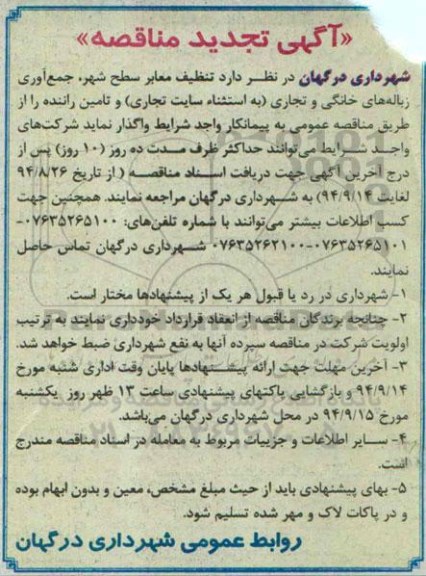 «آگهی تجدید مناقصه»
شهرداری درگهان در نظر دارد تنظیف معابر سطح شهر، جمع‌آوری
زباله‌های خانگی و تجاری (به استثناء سایت تجاری) و تامین راننده را از
طریق مناقصه عمومی به پیمانکار واجد شرایط واگذار نماید شرکت‌های
واجد شرایط می‌توانند حداکثر ظرف مدت ده روز (۱۰ روز) پس از
درج آخرین آگهی جهت دریافت اسناد مناقصه (از تاریخ ۹۴/۸/۲۶
لغایت ۹۴/۹/۱۴) به شهرداری درگهان مراجعه نمایند. همچنین جهت
کسب اطلاعات بیشتر می‌توانند با شماره تلفن‌های: ۰۷۶۳۵۲۶۵۱۰۰-
۰۷۶۳۵۲۶۵۱۰۱-۰۷۶۳۵۲۶۲۱۰۰ شهرداری درگهان تماس حاصل
نمایند.
۱- شهرداری در رد یا قبول هر یک از پیشنهادها مختار است.
۲- چنانچه برندگان مناقصه از انعقاد قرارداد خودداری نمایند به ترتیب
اولویت شرکت در مناقصه سپرده آنها به نفع شهرداری ضبط خواهد شد.
۳- آخرین مهلت جهت ارائه پیشنهادها پایان وقت اداری شنبه مورخ
۹۴/۹/۱۴ و بازگشایی پاکتهای پیشنهادی ساعت ۱۳ ظهر روز یکشنبه
مورخ ۹۴/۹/۱۵ در محل شهرداری درگهان می‌باشد.
۴- سایر اطلاعات و جزییات مربوط به معامله در اسناد مناقصه مندرج
است.
۵- بهای پیشنهادی باید از حیث مبلغ مشخص، معین و بدون ابهام بوده
و در پاکات لاک و مهر شده تسلیم شود.
روابط عمومی شهرداری درگهان